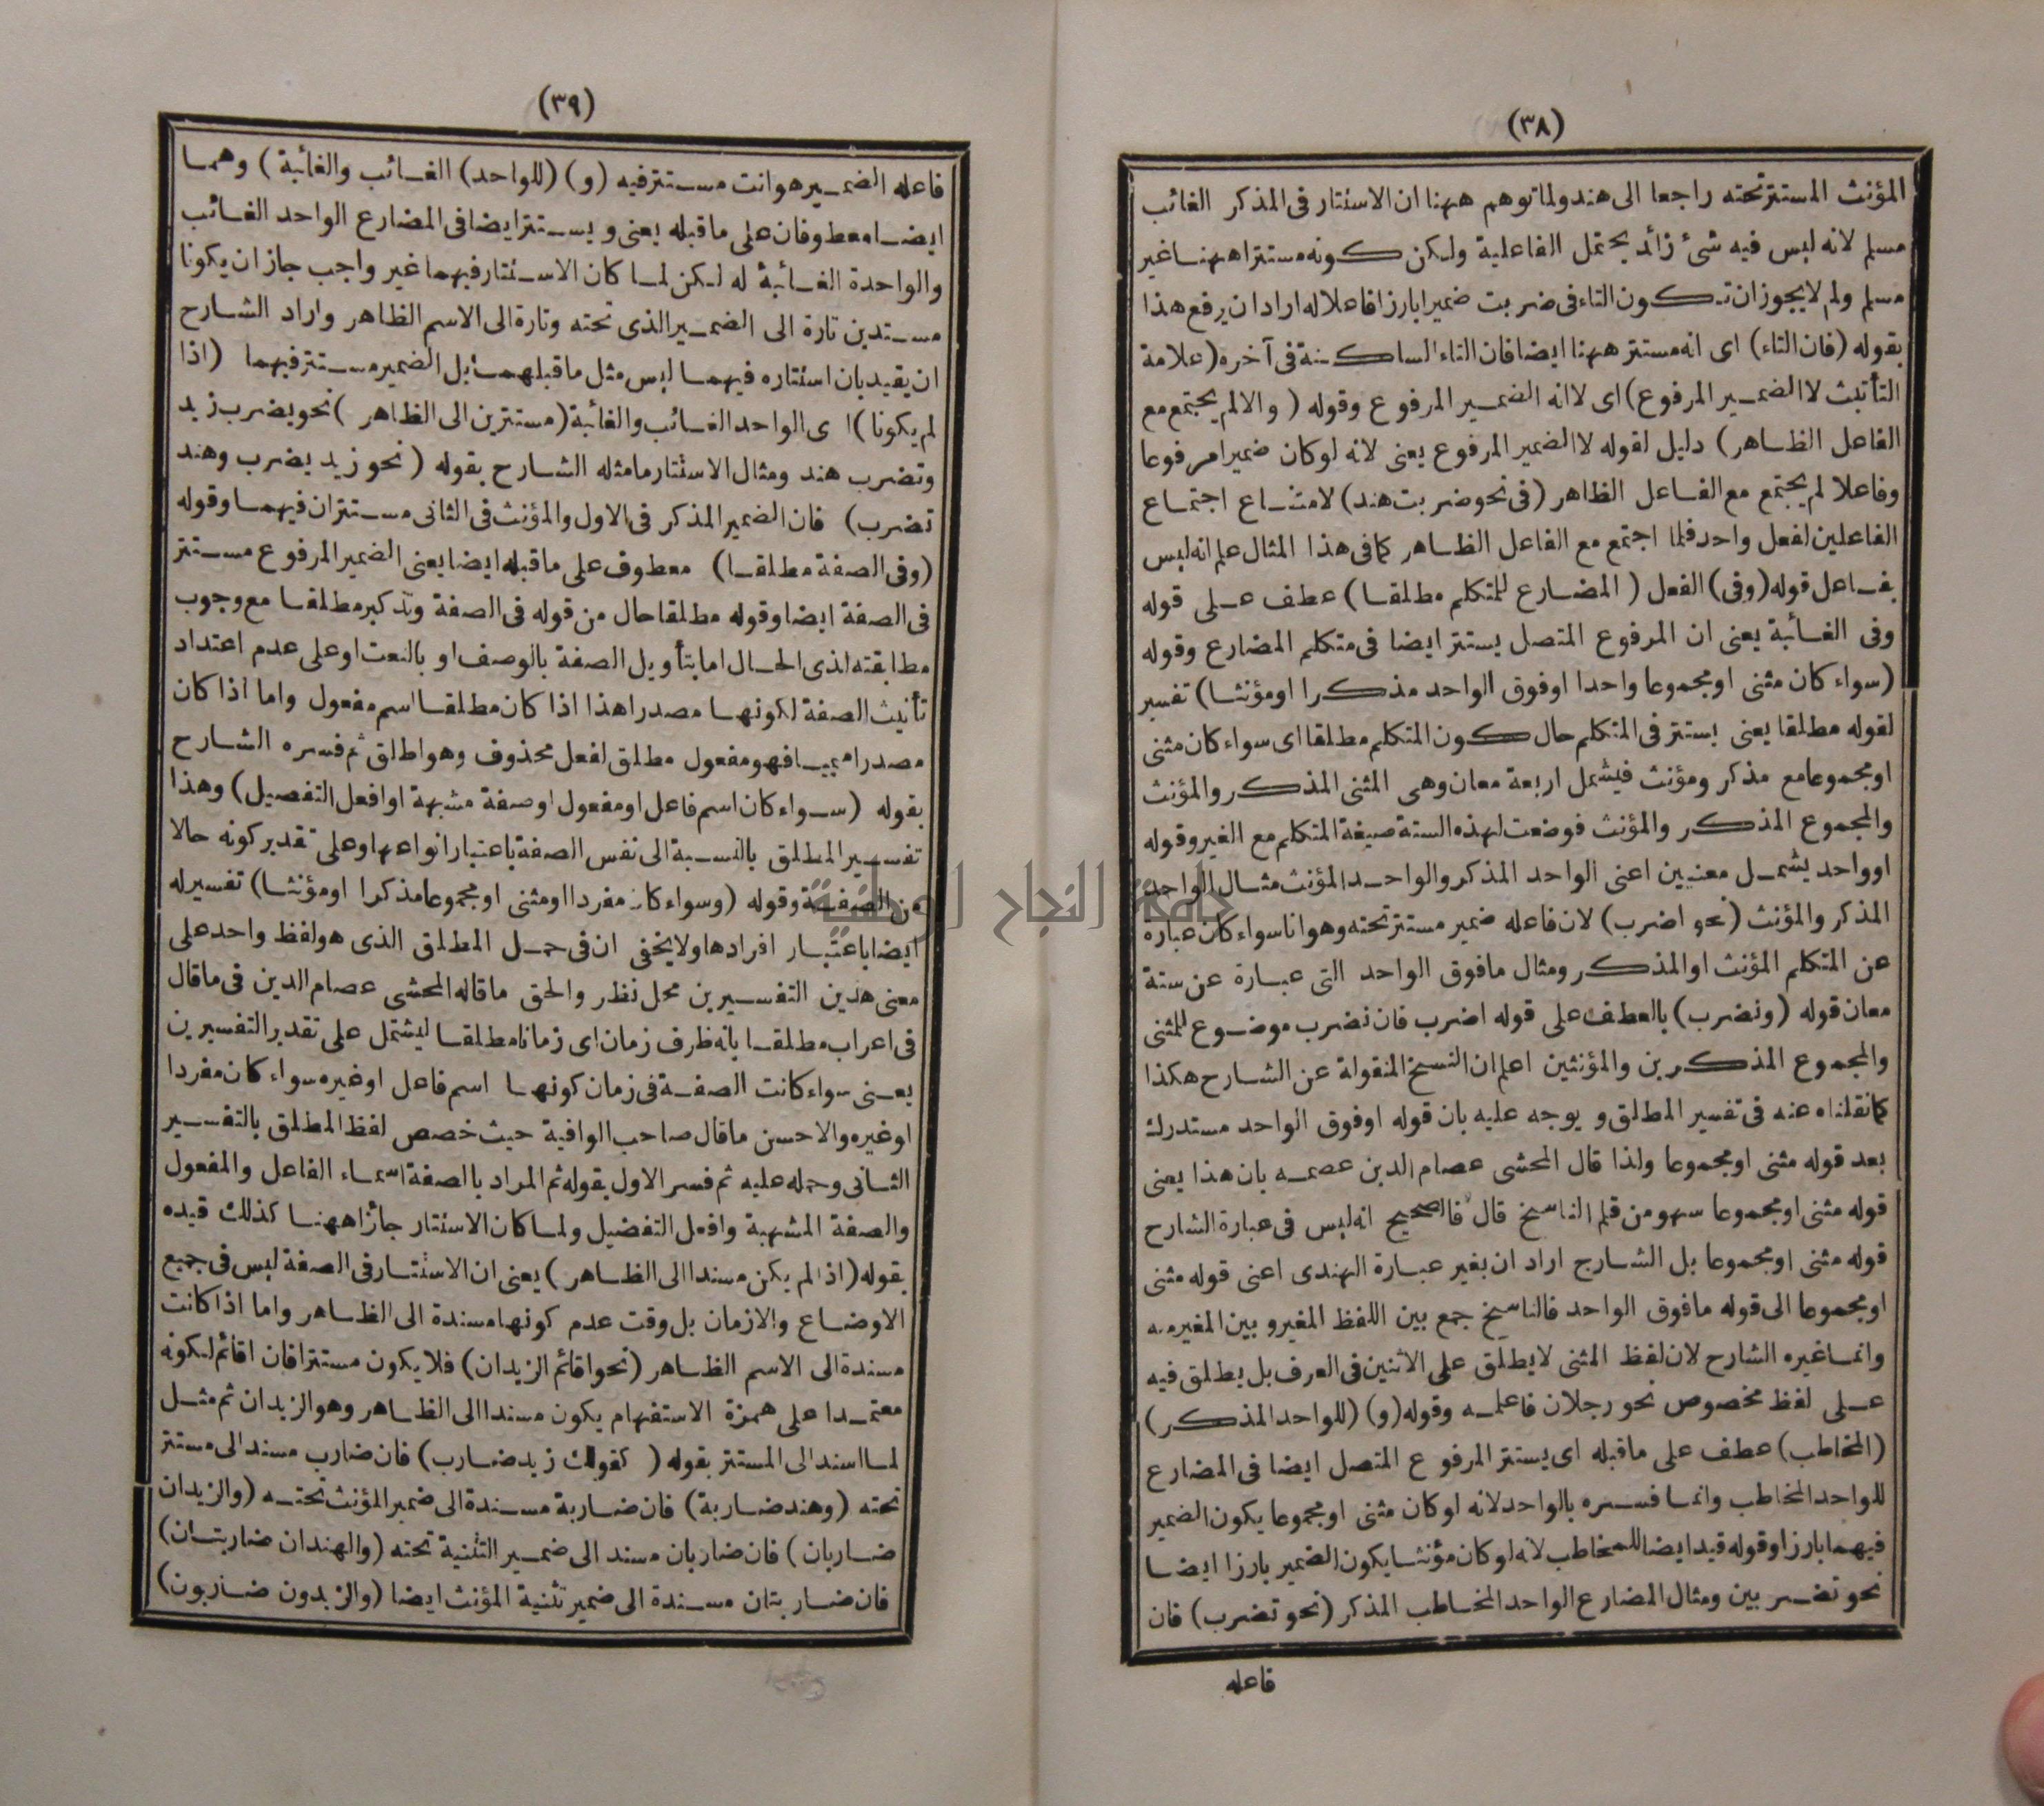 (٣٨)
المؤنث المستتر تحته راجعا الى هند ولما توهم ههنا ان الاستتار فى المذكر الغائب
مسلم لانه ليس فيه شئ زائد يحتمل الفاعلية ولكن كونه مستترا ههنا غير
مسلم ولم لا يجوز ان تكون التاء فى ضربت ضميرا بارزا فاعلا له اراد ان يرفع هذا
بقوله (فان التاء) اى انه مستتر ههنا ايضا فان التاء الساكنة فى آخره (علامة
التأنيث لا الضمير المرفوع) اى لا انه الضمير المرفوع وقوله (والا لم يجتمع مع
الفاعل الظاهر) دليل لقوله لا الضمير المرفوع يعنى لانه لو كان ضميرا مرفوعا
وفاعلا لم يجتمع مع الفاعل الظاهر (فى نحو ضربت هند) لامتناع اجتماع
الفاعلين لفعل واحد فلما اجتمع مع الفاعل الظاهر كما فى هذا المثال علم انه ليس
بفاعل قوله (وفى) الفعل (المضارع للمتكلم مطلقا) عطف على قوله
وفى الغائبة يعنى ان المرفوع المتصل يستتر ايضا فى متكلم المضارع وقوله
(سواء كان مثنى او مجموعا واحدا او فوق الواحد مذكرا او مؤنثا) تفسير
لقوله مطلقا يعنى يستتر فى المتكلم حال كون المتكلم مطلقا اى سواء كان مثنى
او مجموعا مع مذكر ومؤنث فيشمل اربعة معان وهى المثنى المذكر والمؤنث
والمجموع المذكر والمؤنث فوضعت لهذه الستة صيغة المتكلم مع الغير وقوله
او واحد يشمل معنيين اعنى الواحد المذكر والواحد المؤنث مثال الواحد
المذكر والمؤنث (نحو اضرب) لان فاعله ضمير مستتر تحته وهو انا سواء كان عبارة
عن المتكلم المؤنث او المذكر ومثال ما فوق الواحد التى عبارة عن ستة
معان قوله (ونضرب) بالعطف على قوله اضرب فان نضرب موضوع للمثنى
والمجموع المذكرين والمؤنثين اعلم ان النسخ المنقولة عن الشارح هكذا
كما نقلناه عنه فى تفسير المطلق و يوجه عليه بان قوله او فوق الواحد مستدرك
بعد قوله مثنى او مجموعا ولذا قال المحشى عصام الدين عصمه بان هذا يعنى
قوله مثنى او مجموعا سهو من قلم الناسخ قال فالصحيح انه ليس فى عبارة الشارح
قوله مثنى او مجموعا بل الشارح اراد ان يغير عبارة الهندى اعنى قوله مثنى
او مجموعا الى قوله ما فوق الواحد فالناسخ جمع بين اللفظ المغير و بين المغير منه
وانما غيره الشارح لان لفظ المثنى لا يطلق على الاثنين فى العرف بل يطلق فيه
على لفظ مخصوص نحو رجلان فاعلمه وقوله (و) (للواحد المذكر)
(المخاطب) عطف على ما قبله اى يستتر المرفوع المتصل ايضا فى المضارع
للواحد المخاطب وانما فسره بالواحد لانه لو كان مثنى او مجموعا يكون الضمير
فيهما بارزا وقوله قيد ايضا للمخاطب لانه لو كان مؤنثا يكون الضمير بارزا ايضا
نحو تضربين ومثال المضارع الواحد المخاطب المذكر (نحو تضرب) فان
فاعله
(٣٩)
فاعله الضمير هو انت مستتر فيه (و) (للواحد) الغائب والغائبة) وهما
ايضا معطوفان على ما قبله يعنى و يستتر ايضا فى المضارع الواحد الغائب
والواحدة الغائبة له لكن لما كان الاستتار فيهما غير واجب جاز ان يكونا
مستدين تارة الى الضمير الذى تحته وتارة الى الاسم الظاهر واراد الشارح
ان يقيد بان استتاره فيهما ليس مثل ما قبلهما بل الضمير مستتر فيهما (اذا
لم يكونا) اى الواحد الغائب والغائبة (مستترين الى الظاهر) نحو يضرب زيد
وتضرب هند ومثال الاستتار ما مثله الشارح بقوله (نحو زيد يضرب وهند
تضرب) فان الضمير المذكر فى الاول والمؤنث فى الثانى مستتران فيهما وقوله
(وفى الصفة مطلقا) معطوف على ما قبله ايضا يعنى الضمير المرفوع مستتر
فى الصفة ايضا وقوله مطلقا حال من قوله فى الصفة وتذكير مطلقا مع وجوب
مطابقته لذى الحال اما بتأويل الصفة بالوصف او بالنعت او على عدم اعتداد
تأنيث الصفة لكونها مصدرا هذا اذا كان مطلقا اسم مفعول واما اذا كان
مصدرا ميميا فهو مفعول مطلق لفعل محذوف وهو اطلق ثم فسره الشارح
بقوله (سواء كان اسم فاعل او مفعول او صفة مشبهة او افعل التفصيل) وهذا
تفسير المطلق بالنسبة الى نفس الصفة باعتبار انواعها وعلى تقدير كونه حالا
من الصفة وقوله (وسواء كان مفردا او مثنى او مجموعا مذكرا او مؤنثا) تفسير له
ايضا باعتبار افرادها ولا يخفى ان فى حمل المطلق الذى هو لفظ واحد على
معنى هذين التفسيرين محل نظر والحق ما قاله المحشى عصام الدين فى ما قال
فى اعراب مطلقا بانه ظرف زمان اى زمانا مطلقا ليشتمل على تقدير التفسيرين
يعنى سواء كانت الصفة فى زمان كونها اسم فاعل او غيره سواء كان مفردا
او غيره والاحسن ما قال صاحب الوافية حيث خصص لفظ المطلق بالتفسير
الثانى وحمله عليه ثم فسر الاول بقوله ثم المراد بالصفة اسماء الفاعل والمفعول
والصفة المشبهة وافعل التفضيل ولما كان الاستتار جائزا ههنا كذلك قيده
بقوله (اذ لم يكن مسندا الى الظاهر) يعنى ان الاستتار فى الصفة ليس فى جميع
الاوضاع والازمان بل وقت عدم كونها مسندة الى الظاهر واما اذا كانت
مسندة الى الاسم الظاهر (نحو اقائم الزيدان) فلا يكون مستترا فان اقائم لكونه
معتمدا على همزة الاستفهام يكون مسندا الى الظاهر وهو الزيدان ثم مثل
لما اسند الى المستتر بقوله (كقولك زيد ضارب) فان ضارب مسند الى مستتر
تحته (وهند ضاربة) فان ضاربة مسندة الى ضمير المؤنث تحته (والزيدان
ضاربان) فان ضاربان مسند الى ضمير التثنية تحته (والهندان ضاربتان)
فان ضاربتان مسندة الى ضمير تثنية المؤنث ايضا (والزيدون ضاربون)
جامعة النجاح الوطنية